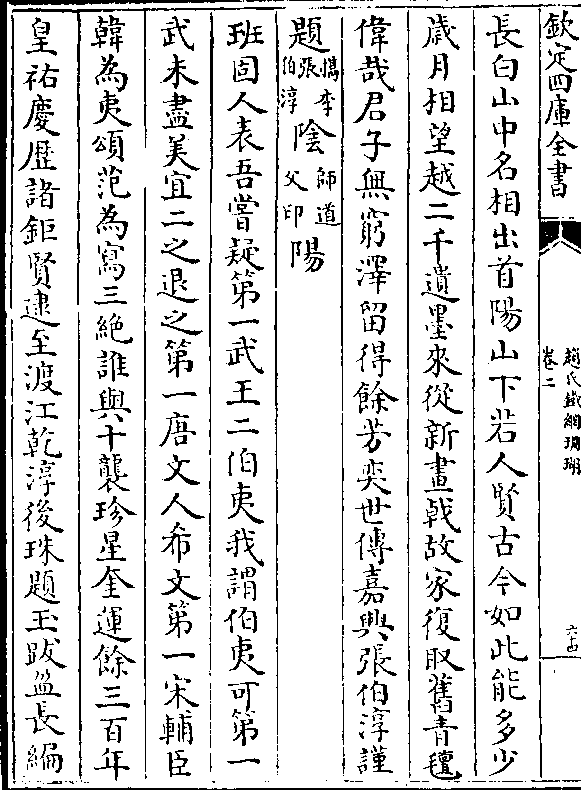 欽定四庫全書
趙氏鐵網珊瑚
卷二
六十四
長白山中名相出首陽山下若人賢古今如此能多少
歲月相望越二千遺墨來從新畫戟故家復取舊青氊
偉哉君子無窮澤留得餘芳奕世傳嘉興張伯淳謹
題檇李張伯淳陰師道父印陽
班固人表吾嘗疑第一武王二伯夷我謂伯夷可第一
武未盡美宜二之退之第一唐文人希文第一宋輔臣
韓為夷頌范為寫三絶誰與十襲珍星奎運餘三百年
皇祐慶歴諸鉅賢逮至渡江乾淳後珠題玉跋盈長編